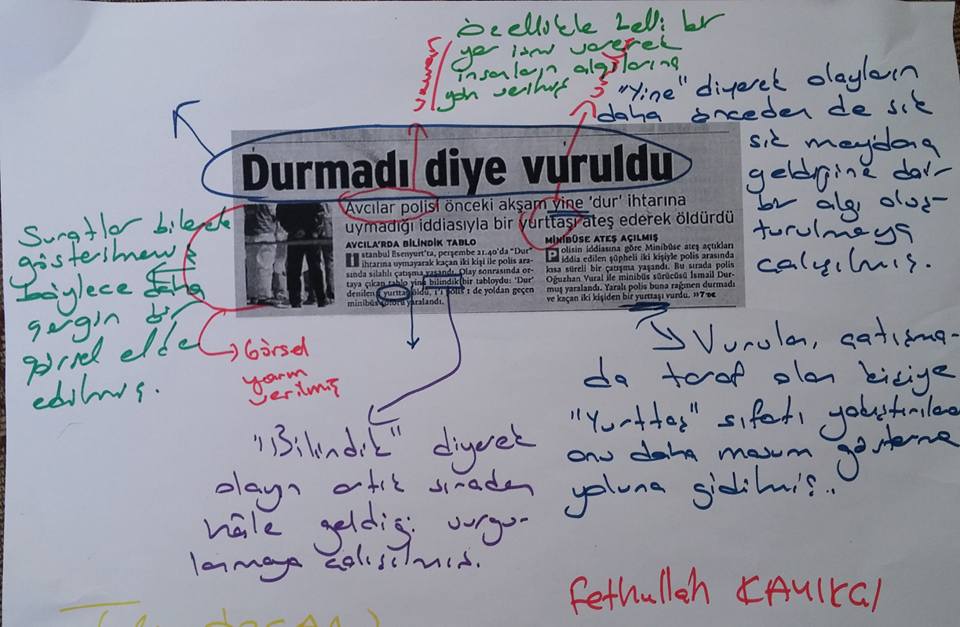 özellikle belli bir
yer ismi vererek
insanların algılarına
yön verilmiş
"Yine" diyerek olayların
daha önceden de sık
sık meydana
geldiğine dair
bir algı oluş-
turulmaya
çalışılmış.
Durmadı diye vuruldu
Avcılar polisi önceki akşam yine 'dur' ihtarına
uymadığı iddiasıyla bir yurttaşı ateş ederek öldürdü
AVCILAR'DA BİLİNDİK TABLO
İstanbul Esenyurt'ta, perşembe 21.40'da "Dur"
ihtarına uymayarak kaçan iki kişi ile polis ara-
sında silahlı çatışma yaşandı. Olay sonrasında or-
taya çıkan tablo yine bilindik bir tabloydu: 'Dur'
denilen yurttaş öldü, 1'i polis 1 de yoldan geçen
minibüs şoförü yaralandı.
MİNİBÜSE ATEŞ AÇILMIŞ
Polisin iddiasına göre Minibüse ateş açtıkları
iddia edilen şüpheli iki kişiyle polis arasında
kısa süreli bir çatışma yaşandı. Bu sırada polis
Oğuzhan Vural ile minibüs sürücüsü İsmail Dur-
muş yaralandı. Yaralı polis buna rağmen durmadı
ve kaçan iki kişiden bir yurttaşı vurdu. »7'DE
Suratlar bilerek
gösterilmemiş
böylece daha
gergin bir
görsel elde
edilmiş.
Görsel
yarım
verilmiş
Vurulan, çatışma-
da taraf olan kişiye
"Yurttaş" sıfatı yakıştırılarak
onu daha masum gösterme
yoluna gidilmiş..
"Bilindik" diyerek
olayın artık sıradan
hâle geldiği vurgu-
lanmaya çalışılmış.
Fethullah KAYIKÇI